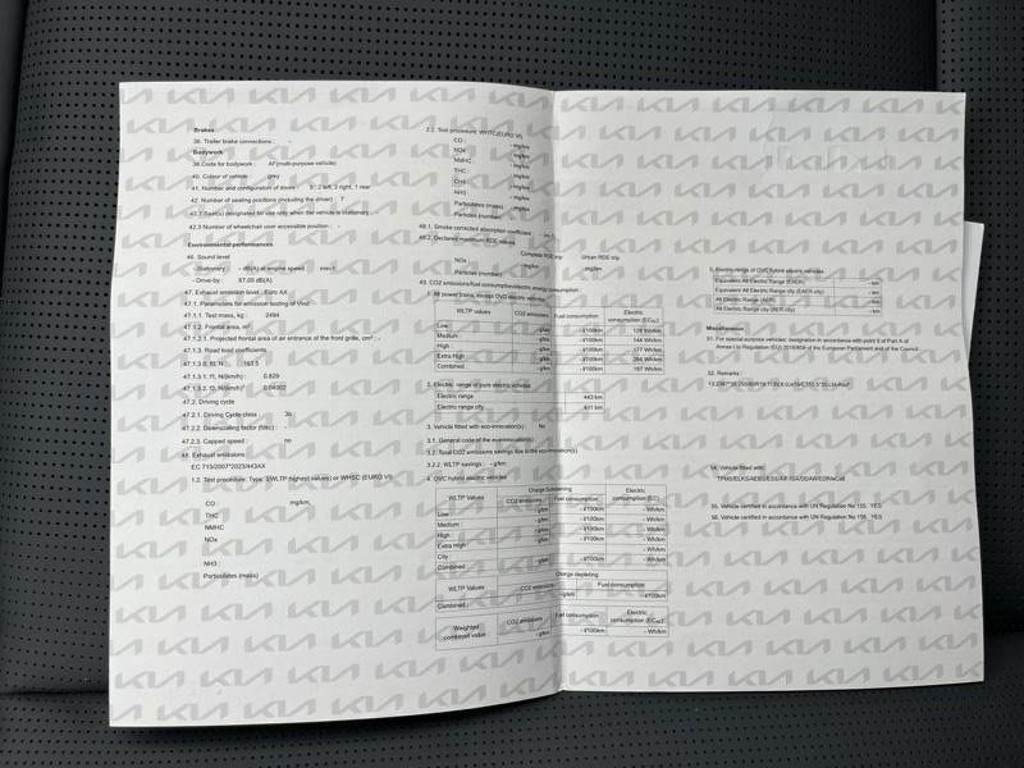 Brakes
36. Trailer brake connections : -
Bodywork
38. Code for bodywork : AF(multi-purpose vehicle)
40. Colour of vehicle : grey
41. Number and configuration of doors : 5 : 2 left, 2 right, 1 rear
42. Number of seating positions (including the driver) : 7
42.1 Seat(s) designated for use only when the vehicle is stationary : -
42.3 Number of wheelchair user accessible position : -
Environmental performances
46. Sound level
- Stationary : - dB(A) at engine speed : min-1
- Drive-by : 67.00 dB(A)
47. Exhaust emission level : Euro AX
47.1. Parameters for emission testing of Vind
47.1.1. Test mass, kg : 2494
47.1.2. Frontal area, m² :
47.1.2.1. Projected frontal area of air entrance of the front grille, cm² :
47.1.3. Road load coefficients
47.1.3.0. f0, N : 163.5
47.1.3.1. f1, N/(km/h) : 0.829
47.1.3.2. f2, N/(km/h)² : 0.04302
47.2. Driving cycle
47.2.1. Driving Cycle class : 3b
47.2.2. Downscaling factor (fdsc) :
47.2.3. Capped speed : no
48. Exhaust emissions :
EC 715/2007*2023/443AX
1.2. Test procedure: Type 1(WLTP highest values) or WHSC (EURO VI)
CO mg/km
THC
NMHC
NOx
NH3 :
Particulates (mass)
2.2. Test procedure: WHTC(EURO VI)
CO - mg/km
NOx - mg/km
NMHC - mg/km
THC - mg/km
CH4 - mg/km
NH3 - mg/km
Particulates (mass) - mg/km
Particles (number)
48.1. Smoke corrected absorption coefficient : m-1
48.2. Declared maximum RDE values
Complete RDE trip Urban RDE trip
NOx - mg/km - mg/km
Particles (number)
49. CO2 emissions/fuel consumption/electric energy consumption :
1. All power trains, except OVC electric vehicles
WLTP values CO2 emissions Fuel consumption Electric consumption (ECAC)
Low - g/km - l/100km 129 Wh/km
Medium - g/km - l/100km 144 Wh/km
High - g/km - l/100km 177 Wh/km
Extra High - g/km - l/100km 264 Wh/km
Combined - g/km - l/100km 197 Wh/km
2. Electric range of pure electric vehicles
Electric range 443 km
Electric range city 611 km
3. Vehicle fitted with eco-innovation(s) : No
3.1. General code of the eco-innovation(s) :
3.2. Total CO2 emissions savings due to the eco-innovation(s)
3.2.2. WLTP savings : - g/km
4. OVC hybrid electric vehicles
Charge Sustaining
WLTP Values CO2 emissions Fuel consumption Electric consumption (EC)
Low - g/km - l/100km - Wh/km
Medium - g/km - l/100km - Wh/km
High - g/km - l/100km - Wh/km
Extra High - g/km - l/100km - Wh/km
City - Wh/km
Combined - g/km - l/100km - Wh/km
Charge depleting
WLTP Values CO2 emissions Fuel consumption
Combined - g/km - l/100km
Weighted combined value CO2 emissions Fuel consumption Electric consumption (ECAC)
- g/km - l/100km - Wh/km
5. Electric range of OVC hybrid electric vehicles
Equivalent All Electric Range (EAER) - km
Equivalent All Electric Range city (EAER city) - km
All Electric Range (AER) - km
All Electric Range city (AER city) - km
Miscellaneous
51. For special purpose vehicles: designation in accordance with point 5 of Part A of
Annex I to Regulation (EU) 2018/858 of the European Parliament and of the Council :
52. Remarks :
54. Vehicle fitted with:
55. Vehicle certified in accordance with UN Regulation No 155 : YES
56. Vehicle certified in accordance with UN Regulation No 156 : YES